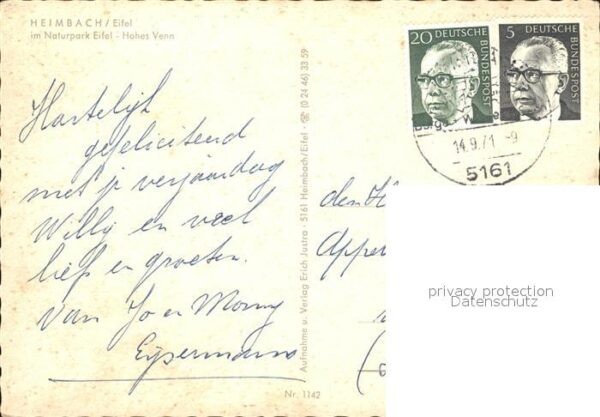 HEIMBACH/Eifel
im Naturpark Eifel - Hohes Venn
Hartelijk
gefeliciteerd
met je verjaardag
Willy en veel
liefs en groeten.
van Jo en
Aufnahme u. Verlag Erich Justra · 5161 Heimbach/Eifel · ☏ (0 24 46) 33 59
Nr. 1142
20 DEUTSCHE BUNDESPOST
5 DEUTSCHE BUNDESPOST
14.9.71-9
5161
den
privacy protection
Datenschutz